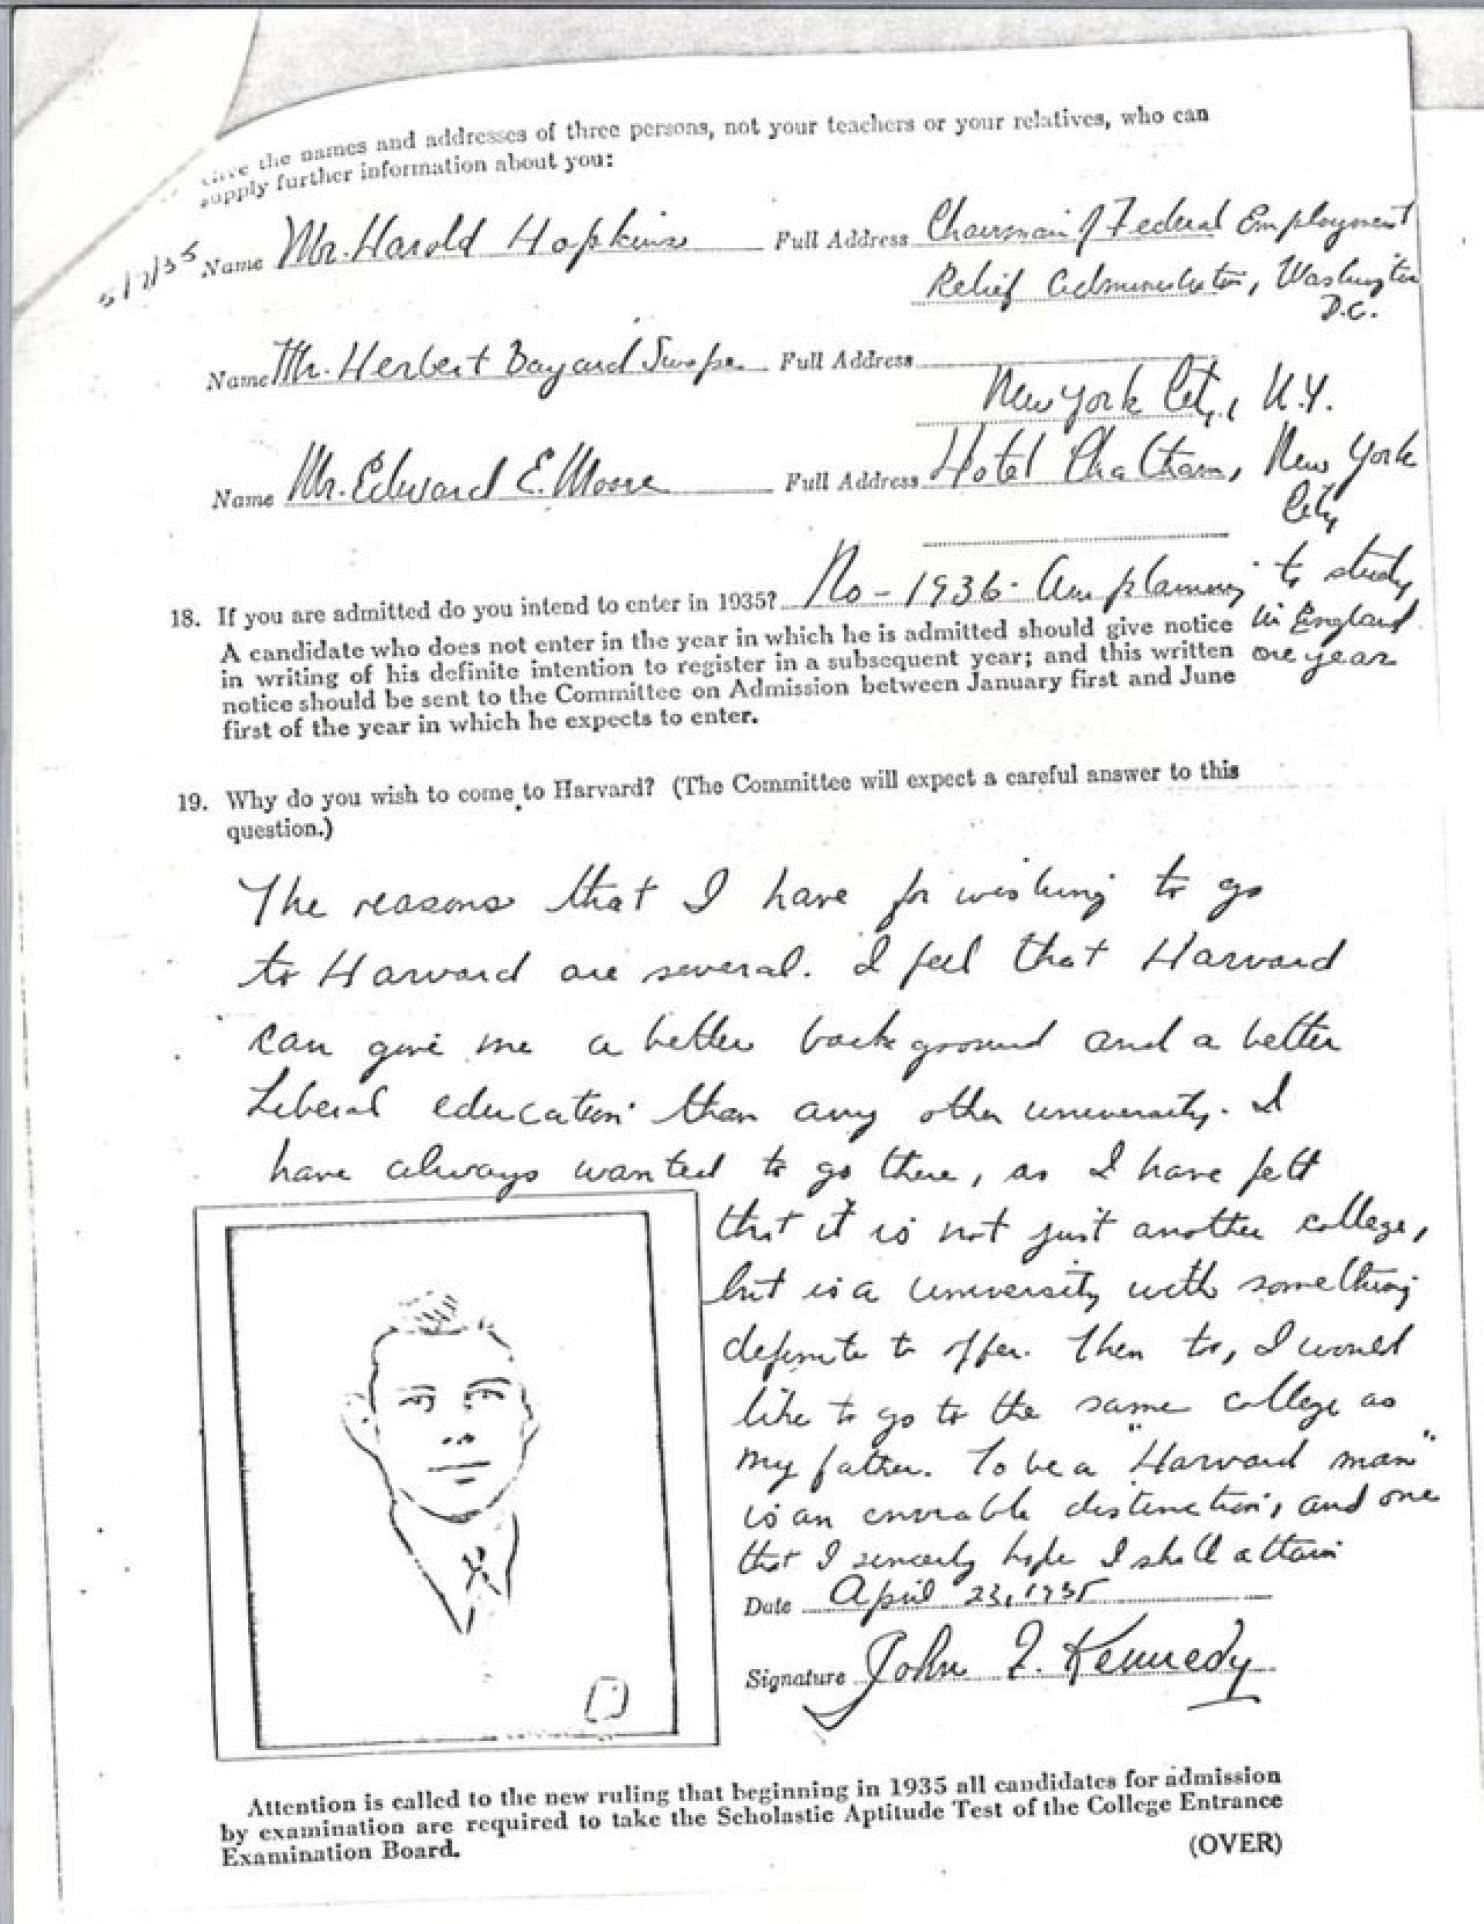 Give the names and addresses of three persons, not your teachers or your relatives, who can
supply further information about you:
5/7/35
Name Mr. Harold Hopkins Full Address Chairman of Federal Employment
Relief Administration, Washington
D.C.
Name Mr. Herbert Bayard Swope Full Address
New York City, N.Y.
Name Mr. Edward E. Moore Full Address Hotel Chatham, New York
City
18. If you are admitted do you intend to enter in 1935? No - 1936 - Am planning to study
in England
one year
A candidate who does not enter in the year in which he is admitted should give notice
in writing of his definite intention to register in a subsequent year; and this written
notice should be sent to the Committee on Admission between January first and June
first of the year in which he expects to enter.
19. Why do you wish to come to Harvard? (The Committee will expect a careful answer to this
question.)
The reasons that I have for wishing to go
to Harvard are several. I feel that Harvard
can give me a better background and a better
liberal education than any other university. I
have always wanted to go there, as I have felt
that it is not just another college,
but is a university with something
definite to offer. Then too, I would
like to go to the same college as
my father. To be a "Harvard man"
is an enviable distinction, and one
that I sincerely hope I shall attain
Date April 23, 1935
Signature John F. Kennedy
Attention is called to the new ruling that beginning in 1935 all candidates for admission
by examination are required to take the Scholastic Aptitude Test of the College Entrance
Examination Board.
(OVER)